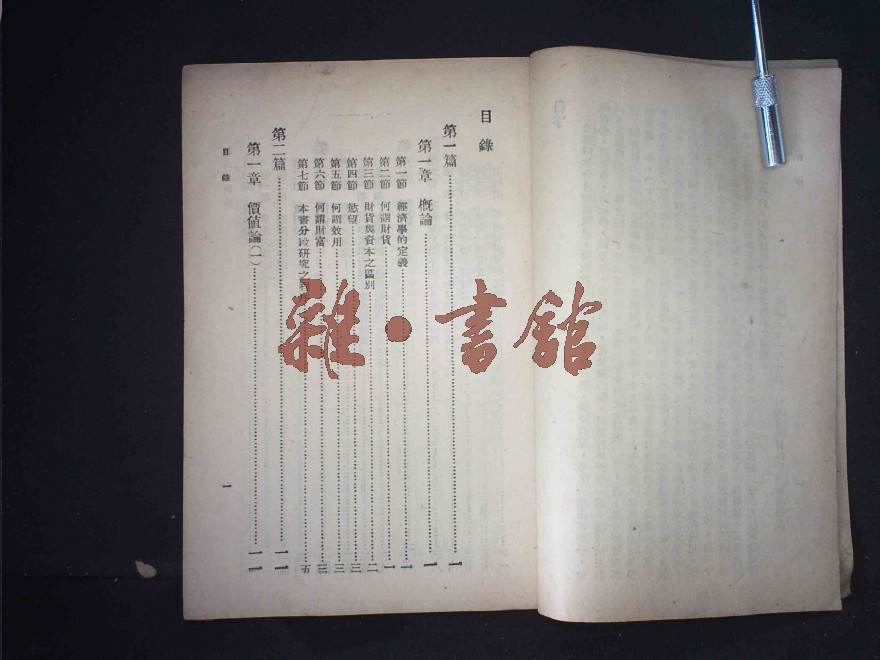 目錄
第一篇……一
第一章 概論……一
第一節 經濟學的定義……一
第二節 何謂財貨……一
第三節 財貨與資本之區別……二
第四節 慾望……三
第五節 何謂效用……三
第六節 何謂財富……三
第七節 本書分段研究之……五
第二篇……一一
第一章 價值論(一)……一一
目錄
一
雜·書館